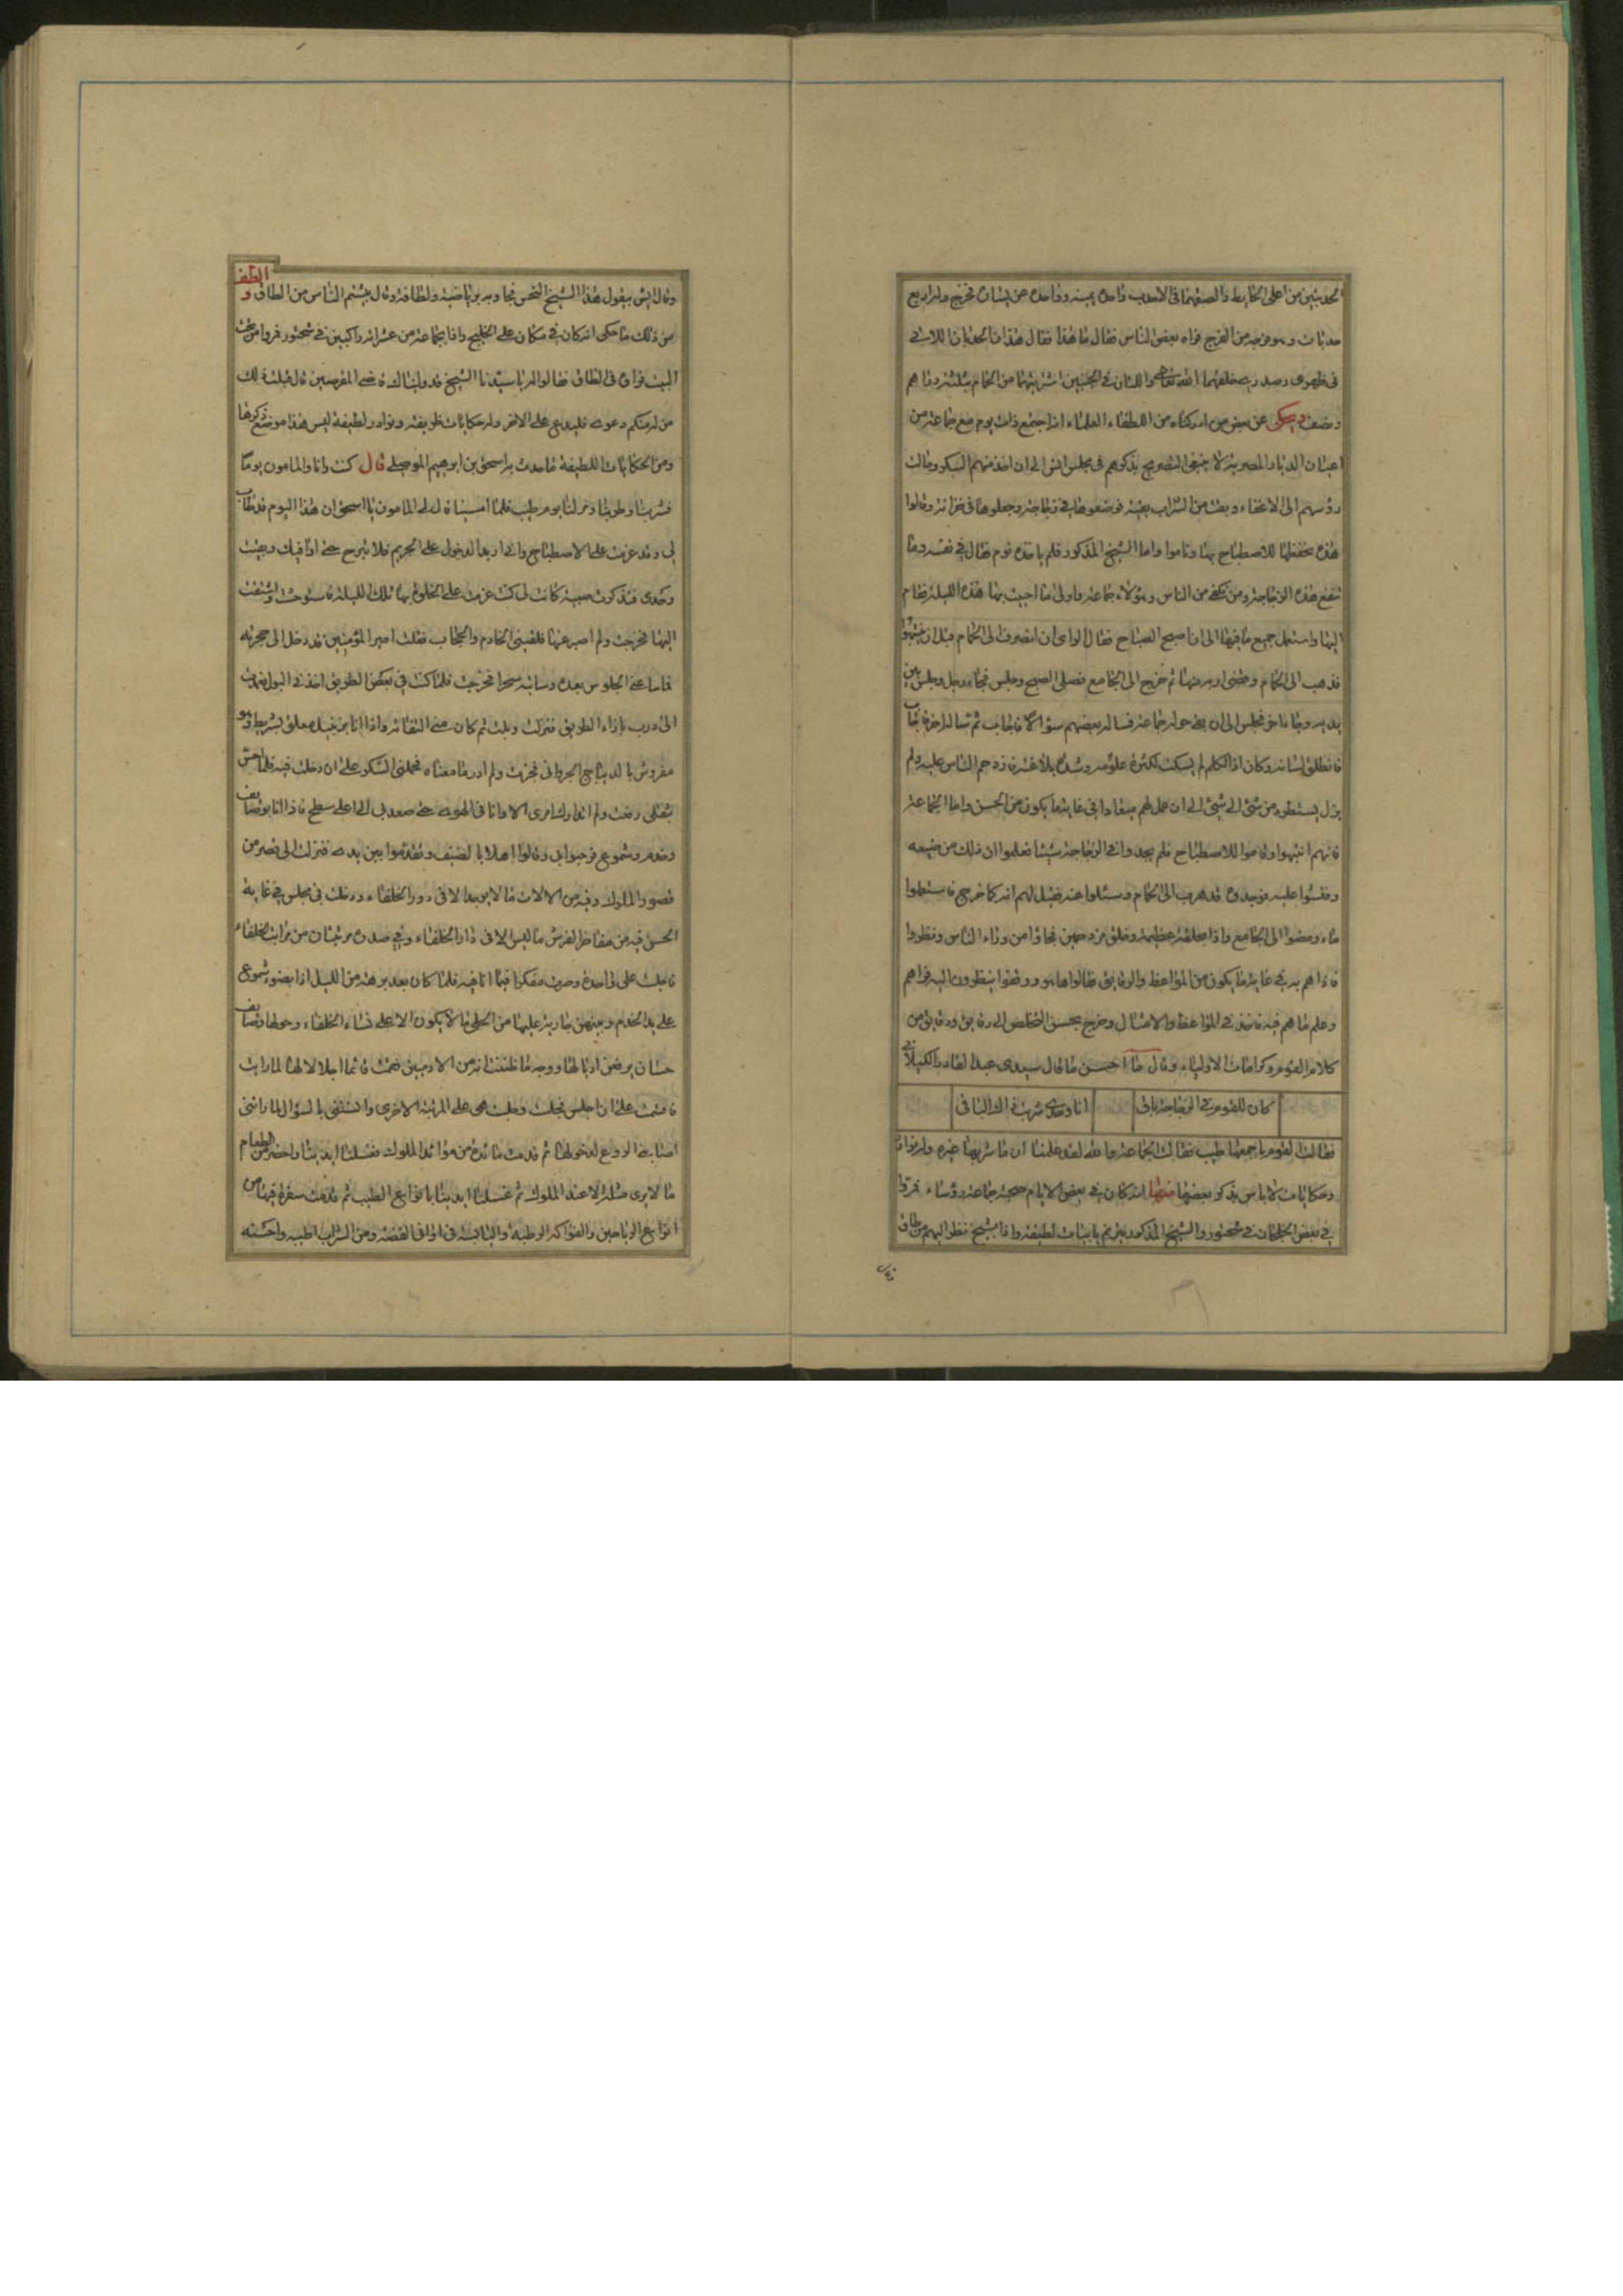 الحدبتين من اعلى الحايط والصقهما في الاحدب واحده يمينه وواحده عن يساره فخرج وله اربع
حدبات وهو فرجه من الفرج فراه بعض الناس فقال ما هذا فقال هذان الحدبتان اللاتي
في ظهري وصدري خلقهما الله تعالى واللتان في الجنبين اشتريتهما من الحمام بثلثة دراهم
ونصف ويحكى عن بعض من ادركناه من اللطفاء العلماء انه اجتمع ذات يوم مع جماعة من
اعيان الديار المصرية لا ينبغي التصريح بذكرهم في مجلس انس الى ان اخذ منهم السكر ومالت
رؤسهم الى الاغفاء وبقت من الشراب بقية فوضعوها في زجاجة وجعلوها في خزانة وقالوا
هذه نحفظها للاصطباح بها وناموا واما الشيخ المذكور فلم ياخذه نوم فقال في نفسه وما
تنفع هذه الزجاجة ومن تكفي من الناس وهؤلاء جماعة فاولى ما احييت بها هذه الليلة فقام
اليها واستعمل جميع ما فيها الى ان اصبح الصباح فقال الراى ان انصرف الى الحمام قبل ان ينتبهوا
فذهب الى الحمام وقضى اربه منها ثم خرج الى الجامع فصلى الصبح وجلس فجاء رجل وجلس بين
يديه وجاء اخر فجلس الى ان بقي حوله جماعة فساله بعضهم سؤالا فاجاب ثم ساله اخر فاجاب
فانطلق لسانه وكان اذا تكلم لم يسكت لكثرة علومه وشدة بلاغته فازدحم الناس عليه ولم
يزل يستطرد من شئ الى شئ الى ان عمل لهم ميعادا في غاية ما يكون من الحسن واما الجماعة
فانهم انتبهوا وقاموا للاصطباح فلم يجدوا في الزجاجة شيئا فعلموا ان ذلك من صنيعه
وفتشوا عليه فوجدوه قد هرب الى الحمام وسئلوا عنه فقيل لهم انه كما خرج فاستعملوا
ماء ومضوا الى الجامع واذا بحلقة عظيمة وخلق مزدحمين فجاؤا من وراء الناس ونظروا
فاذا هم به في غاية ما يكون من المواعظ والرقايق فقالوا ها هو ووقفوا ينظرون اليه فراهم
وعلم ما هم فيه فاخذ في المواعظ والامثال وخرج بحسن التخلص الى رقايق ودقايق من
كلام القوم وكرامات الاولياء وقال ما احسن ما قال سيدى عبد القادر الكيلاني
كان للقوم في الزجاجة باقى انا وحدى شربت ذاك الباقى
فقالت القوم باجمعها طيب فقالت الجماعة والله لقد علمنا ان ما شربها غيره وله نوادر
وحكايات لا باس بذكر بعضها منها انه كان في بعض الايام صحبة جماعة رؤساء فمروا
في بعض الخلجان في شختور والشيخ المذكور يترنم بابيات لطيفة واذا بشيخ نظر اليهم من طاق
وقال ايش بيقول هذا الشيخ النحس فجاوبه برياضة ولطافة وقال بيشتم الناس من الطاق الطف و
من ذلك ما حكى انه كان في مكان على الخليج واذا بجماعة من عشرائه راكبين في شختور فمروا من تحت
البيت فراوه في الطاق فقالوا له يا سيدنا الشيخ قد وليناك قاضي المقرصين قال قبلت ذلك
من له منكم دعوى فليدعى على الاخر وله حكايات ظريفة ونوادر لطيفة ليس هذا موضع ذكرها
ومن الحكايات اللطيفة ما حدث به اسحق بن ابرهيم الموصلي قال كنت وانا والمامون يوما
فشربنا وطربنا ومر لنا يوم طيب فلما امسينا قال لي المامون يا اسحق ان هذا اليوم قد طاب
لي وقد عزمت على الاصطباح وانا اريد الدخول على الحريم فلا تبرح حتى اوافيك وبقيت
وحدى فتذكرت صبية كانت لي كنت عزمت على الخلوة بها تلك الليلة فاستوحشت واشتقت
اليها فخرجت ولم اصبر عنها فلقيني الخادم والحجاب فقلت امير المؤمنين قد دخل الى حجرته
فما معنى الجلوس بعده وساتيه سحرا فخرجت فلما كنت في بعض الطريق اخذني البول فعدلت
الى درب بازاء الطريق فنزلت وبلت ثم كان مني التفاتة واذا انا بزنبيل معلق بشريط وهو
مفروش بالديباج الجرجاني فحزنت ولم ادر ما معناه فحملني السكر على ان دخلت فيه فلما احس
بثقلي رفعت ولم اتدارك امرى الا وانا في الهوى حتى صعد بي الى اعلى سطح فاذا انا بوصايف
وخدم وشموع فرحبوا بي وقالوا اهلا بالضيف وتقدموا بين يدى فنزلت الى قصر من
قصور الملوك وفيه من الالات ما لا يوجد الا في دور الخلفاء ودخلت في مجلس في غاية
الحسن فيه من مفاخر الفرش ما ليس الا في دار الخلفاء وفي صدره مرتبتان من مراتب الخلفاء
فجلست على واحدة وصرت مفكرا فيما انا فيه فلما كان بعد برهة من الليل اذا بضوء شموع
على يد الخدم وبينهن جارية عليها من الحلي ما لا يكون الا على نساء الخلفاء وحولها وصايف
حسان يرفعن اذيالها ووجه ما ظننت انه من الادميين فقمت قائما اجلالا لها لما رايت
فاقسمت على ان اجلس فجلست وجلست هي على المرتبة الاخرى وانستني بالسؤال لما راتني
اصابني الروع لدخولها ثم قدمت مائدة من موائد الملوك فغسلنا ايدينا واحضر من الطعام
ما لا يرى مثله الا عند الملوك ثم غسلنا ايدينا بانواع الطيب ثم قدمت سفرة فيها من
انواع الرياحين والفواكه الرطبة واليابسة في اواني الفضة ومن الشراب اطيبه واحسنه